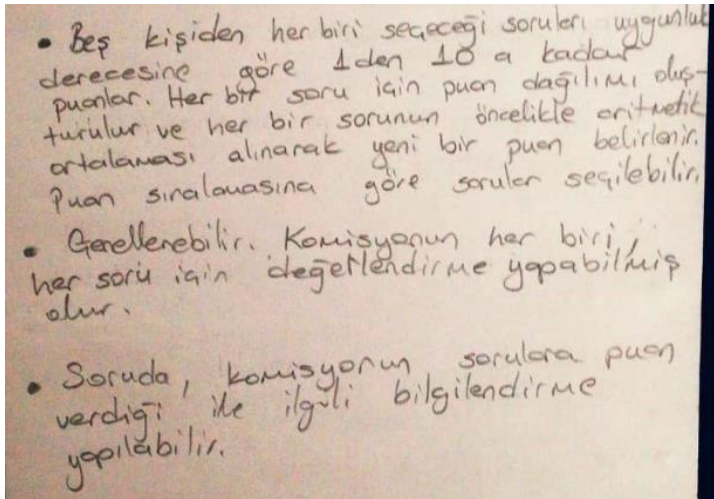 • Beş kişiden her biri seçeceği soruları uygunluk
derecesine göre 1 den 10 a kadar
puanlar. Her bir soru için puan dağılımı oluş-
turulur ve her bir sorunun öncelikle aritmetik
ortalaması alınarak yeni bir puan belirlenir.
Puan sıralamasına göre sorular seçilebilir.
• Genellenebilir. Komisyonun her biri,
her soru için değerlendirme yapabilmiş
olur.
• Soruda, komisyonun sorulara puan
verdiği ile ilgili bilgilendirme
yapılabilir.